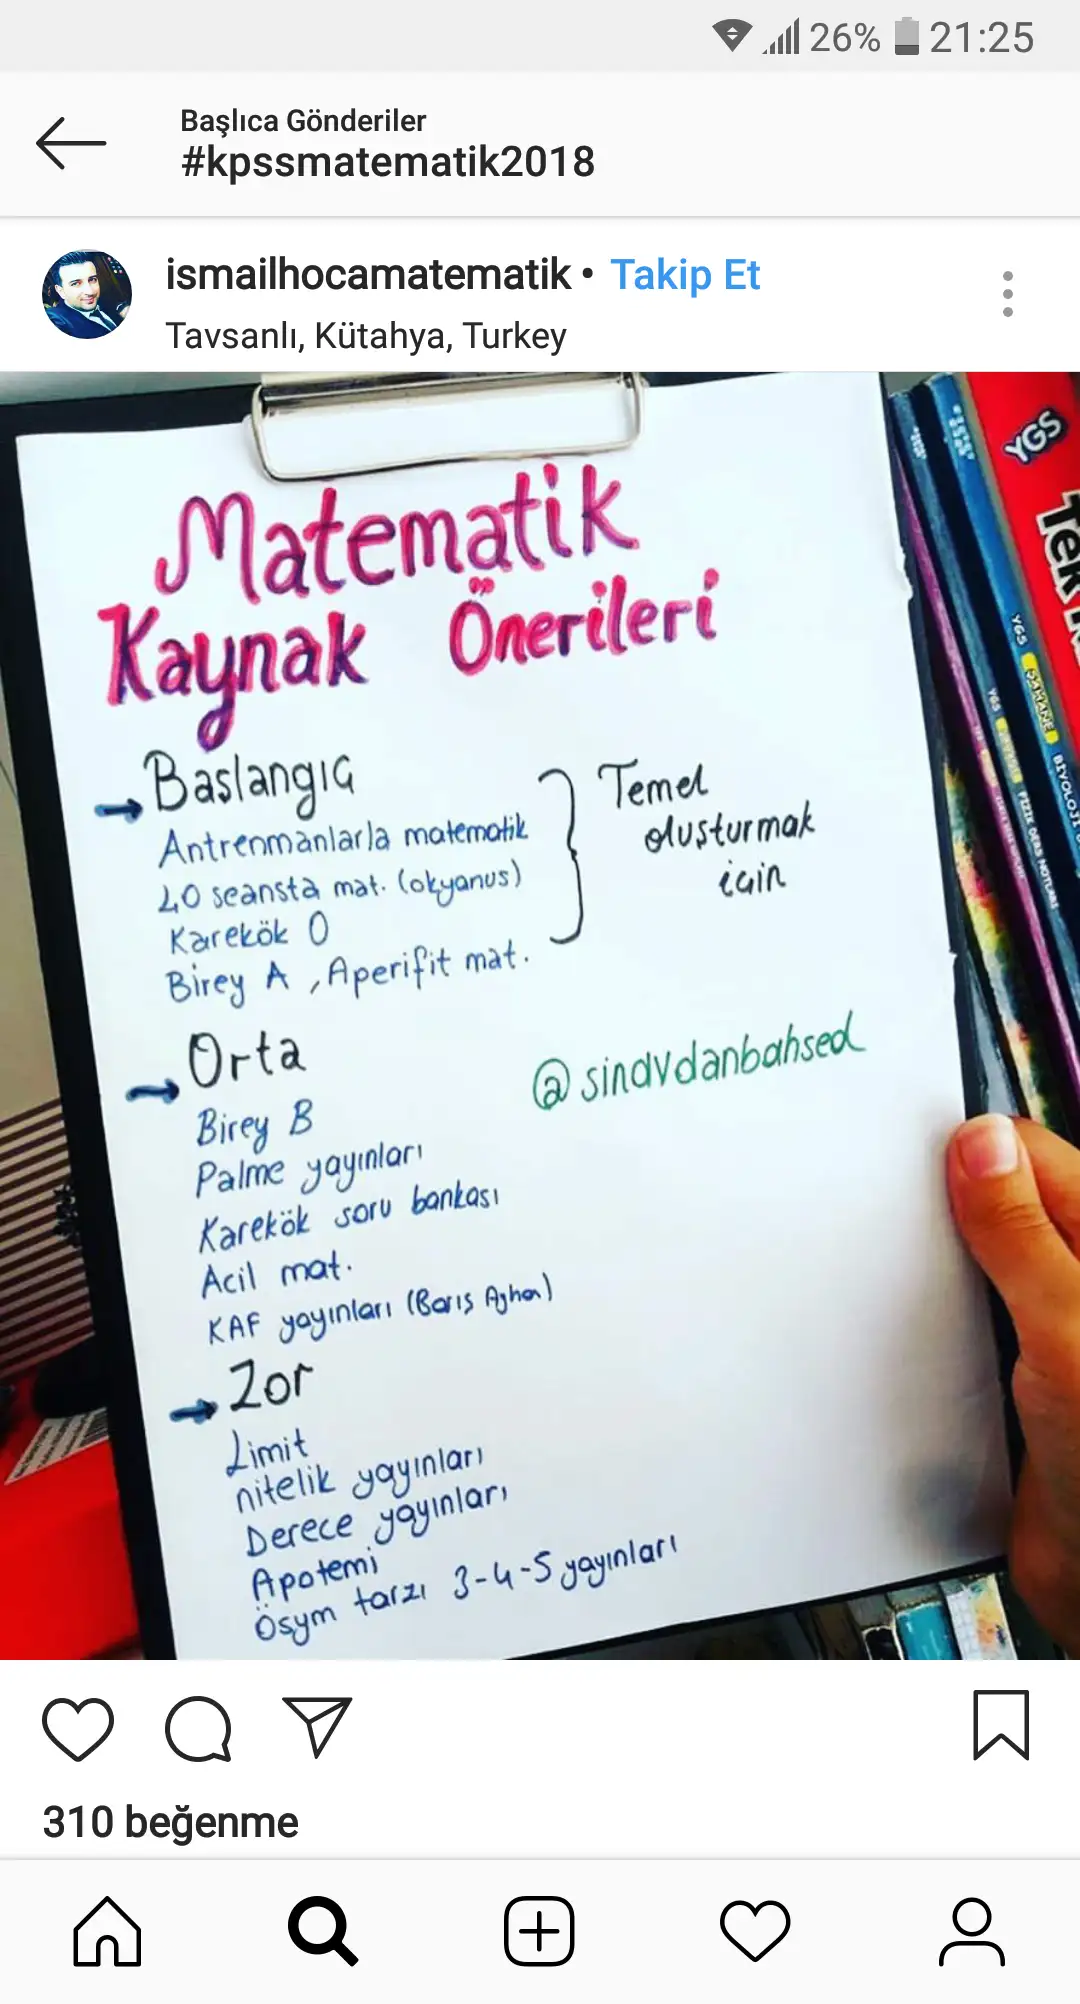 26% 21:25
Başlıca Gönderiler
#kpssmatematik2018
ismailhocamatematik • Takip Et
Tavsanlı, Kütahya, Turkey
Matematik
Kaynak Önerileri
→ Baslangıç
Antrenmanlarla matematik
40 seansta mat. (okyanus)
Karekök 0
Birey A, Aperifit mat.
Temel
oluşturmak
için
→ Orta
Birey B
Palme yayınları
Karekök soru bankası
Acil mat.
KAF yayınları (Barış Ayhan)
@sinavdanbahsed
→ Zor
Limit
nitelik yayınları
Derece yayınları
Apotemi
Ösym tarzı 3-4-5 yayınları
YGS
Tek
YGS ŞAHANE BİYOLOJİ
YGS FİZİK DERS NOTLARI
310 beğenme